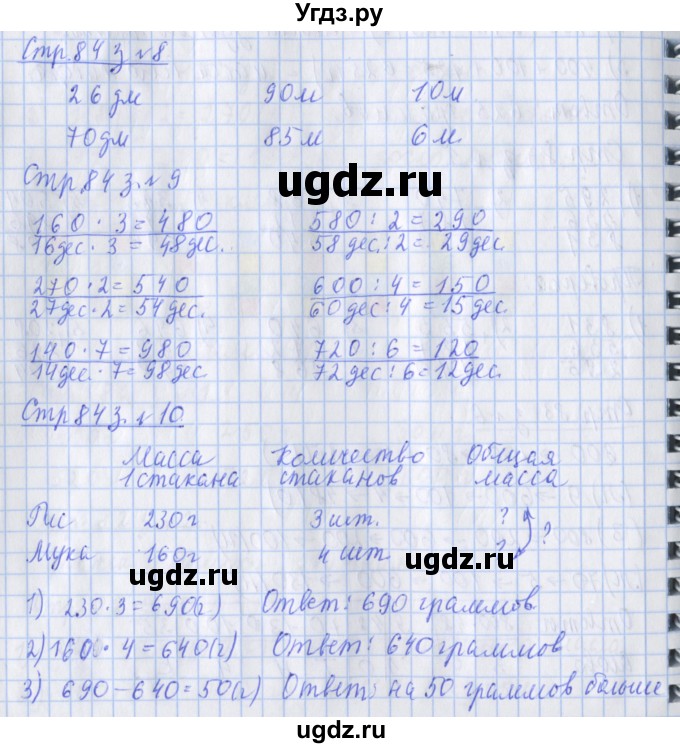 Угдз.ру
Стр.84 з. №8
26дм 90м 10м
70дм 85м 6м.
Стр 84 з. №9
ugdz.ru
160 · 3 = 480 580 : 2 = 290
16дес · 3 = 48дес. 58дес : 2 = 29дес.
270 · 2 = 540 600 : 4 = 150
27дес · 2 = 54дес. 60дес : 4 = 15дес.
140 · 7 = 980 720 : 6 = 120
14дес. · 7 = 98дес 72дес : 6 = 12дес.
Стр 84 з. №10
Масса Количество Общая
1стакана стаканов масса
Рис 230г 3шт. ?
Мука 160г 4шт ? ?
ugdz.ru ugdz.ru
1) 230 · 3 = 690(г) Ответ: 690 граммов
2) 160 · 4 = 640(г) Ответ: 640 граммов
3) 690 – 640 = 50(г) Ответ: на 50 граммов больше
ugdz.ru